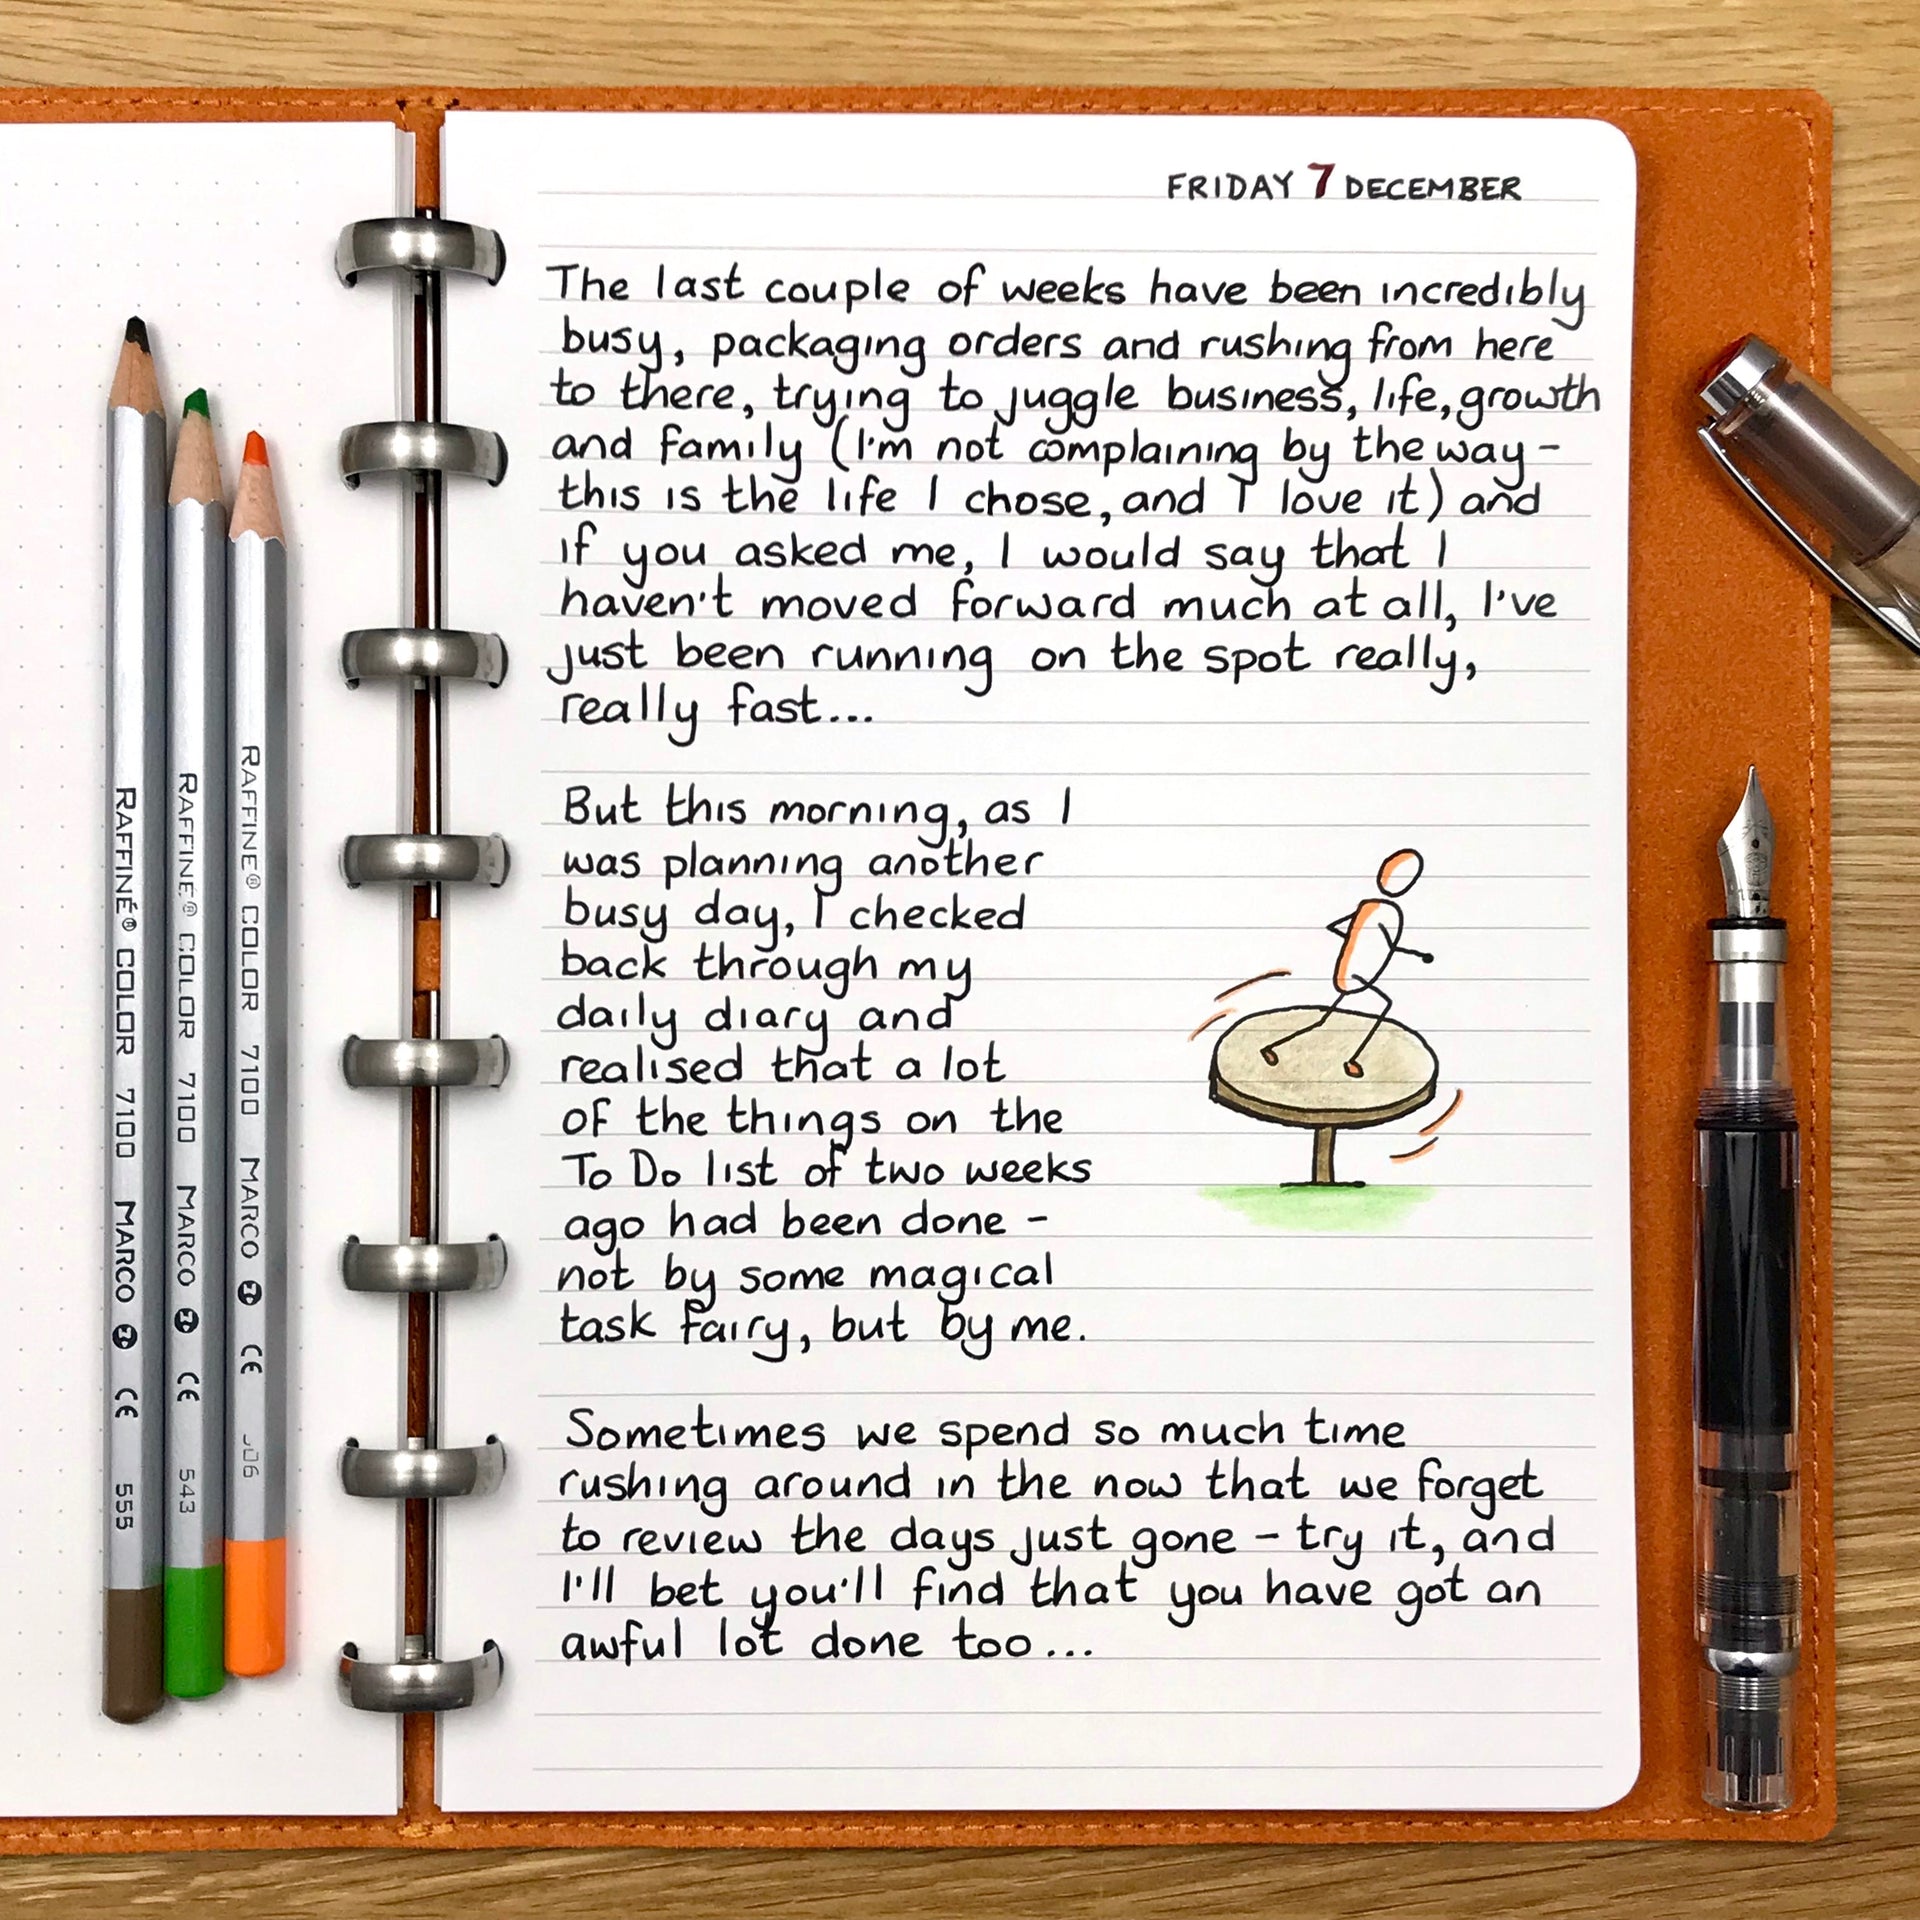 FRIDAY 7 DECEMBER
The last couple of weeks have been incredibly
busy, packaging orders and rushing from here
to there, trying to juggle business, life, growth
and family (I'm not complaining by the way -
this is the life I chose, and I love it) and
if you asked me, I would say that I
haven't moved forward much at all, I've
just been running on the spot really,
really fast...
But this morning, as I
was planning another
busy day, I checked
back through my
daily diary and
realised that a lot
of the things on the
To Do list of two weeks
ago had been done -
not by some magical
task fairy, but by me.
Sometimes we spend so much time
rushing around in the now that we forget
to review the days just gone - try it, and
I'll bet you'll find that you have got an
awful lot done too...
RAFFINÉ® COLOR 7100 MARCO CE 555
RAFFINÉ® COLOR 7100 MARCO CE 543
RAFFINE® COLOR 7100 MARCO CE